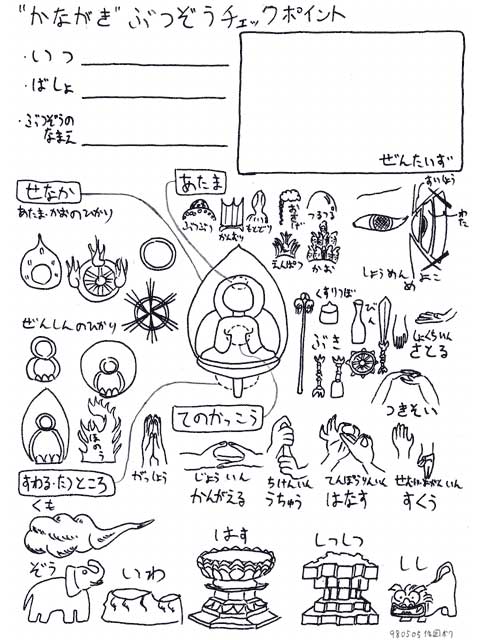 "かながき" ぶつぞうチェックポイント
・いつ
・ばしょ
・ぶつぞうの
なまえ
ぜんたいず
せなか
あたま・かおのひかり
あたま
ぶつぶつ
かんむり
もとどり
おさげ
つるつる
えんぱつ
かお
すいしょう
わた
め
しょうめん
よこ
ぜんしんのひかり
ほのう
くすりつぼ
びん
ぶき
さとる
つきそい
てのかっこう
がっしょう
じょういん
かんがえる
ちけんいん
うちゅう
てんぽうりんいん
はなす
すくう
すわる・たつところ
くも
ぞう
いわ
はす
しっしつ
しし